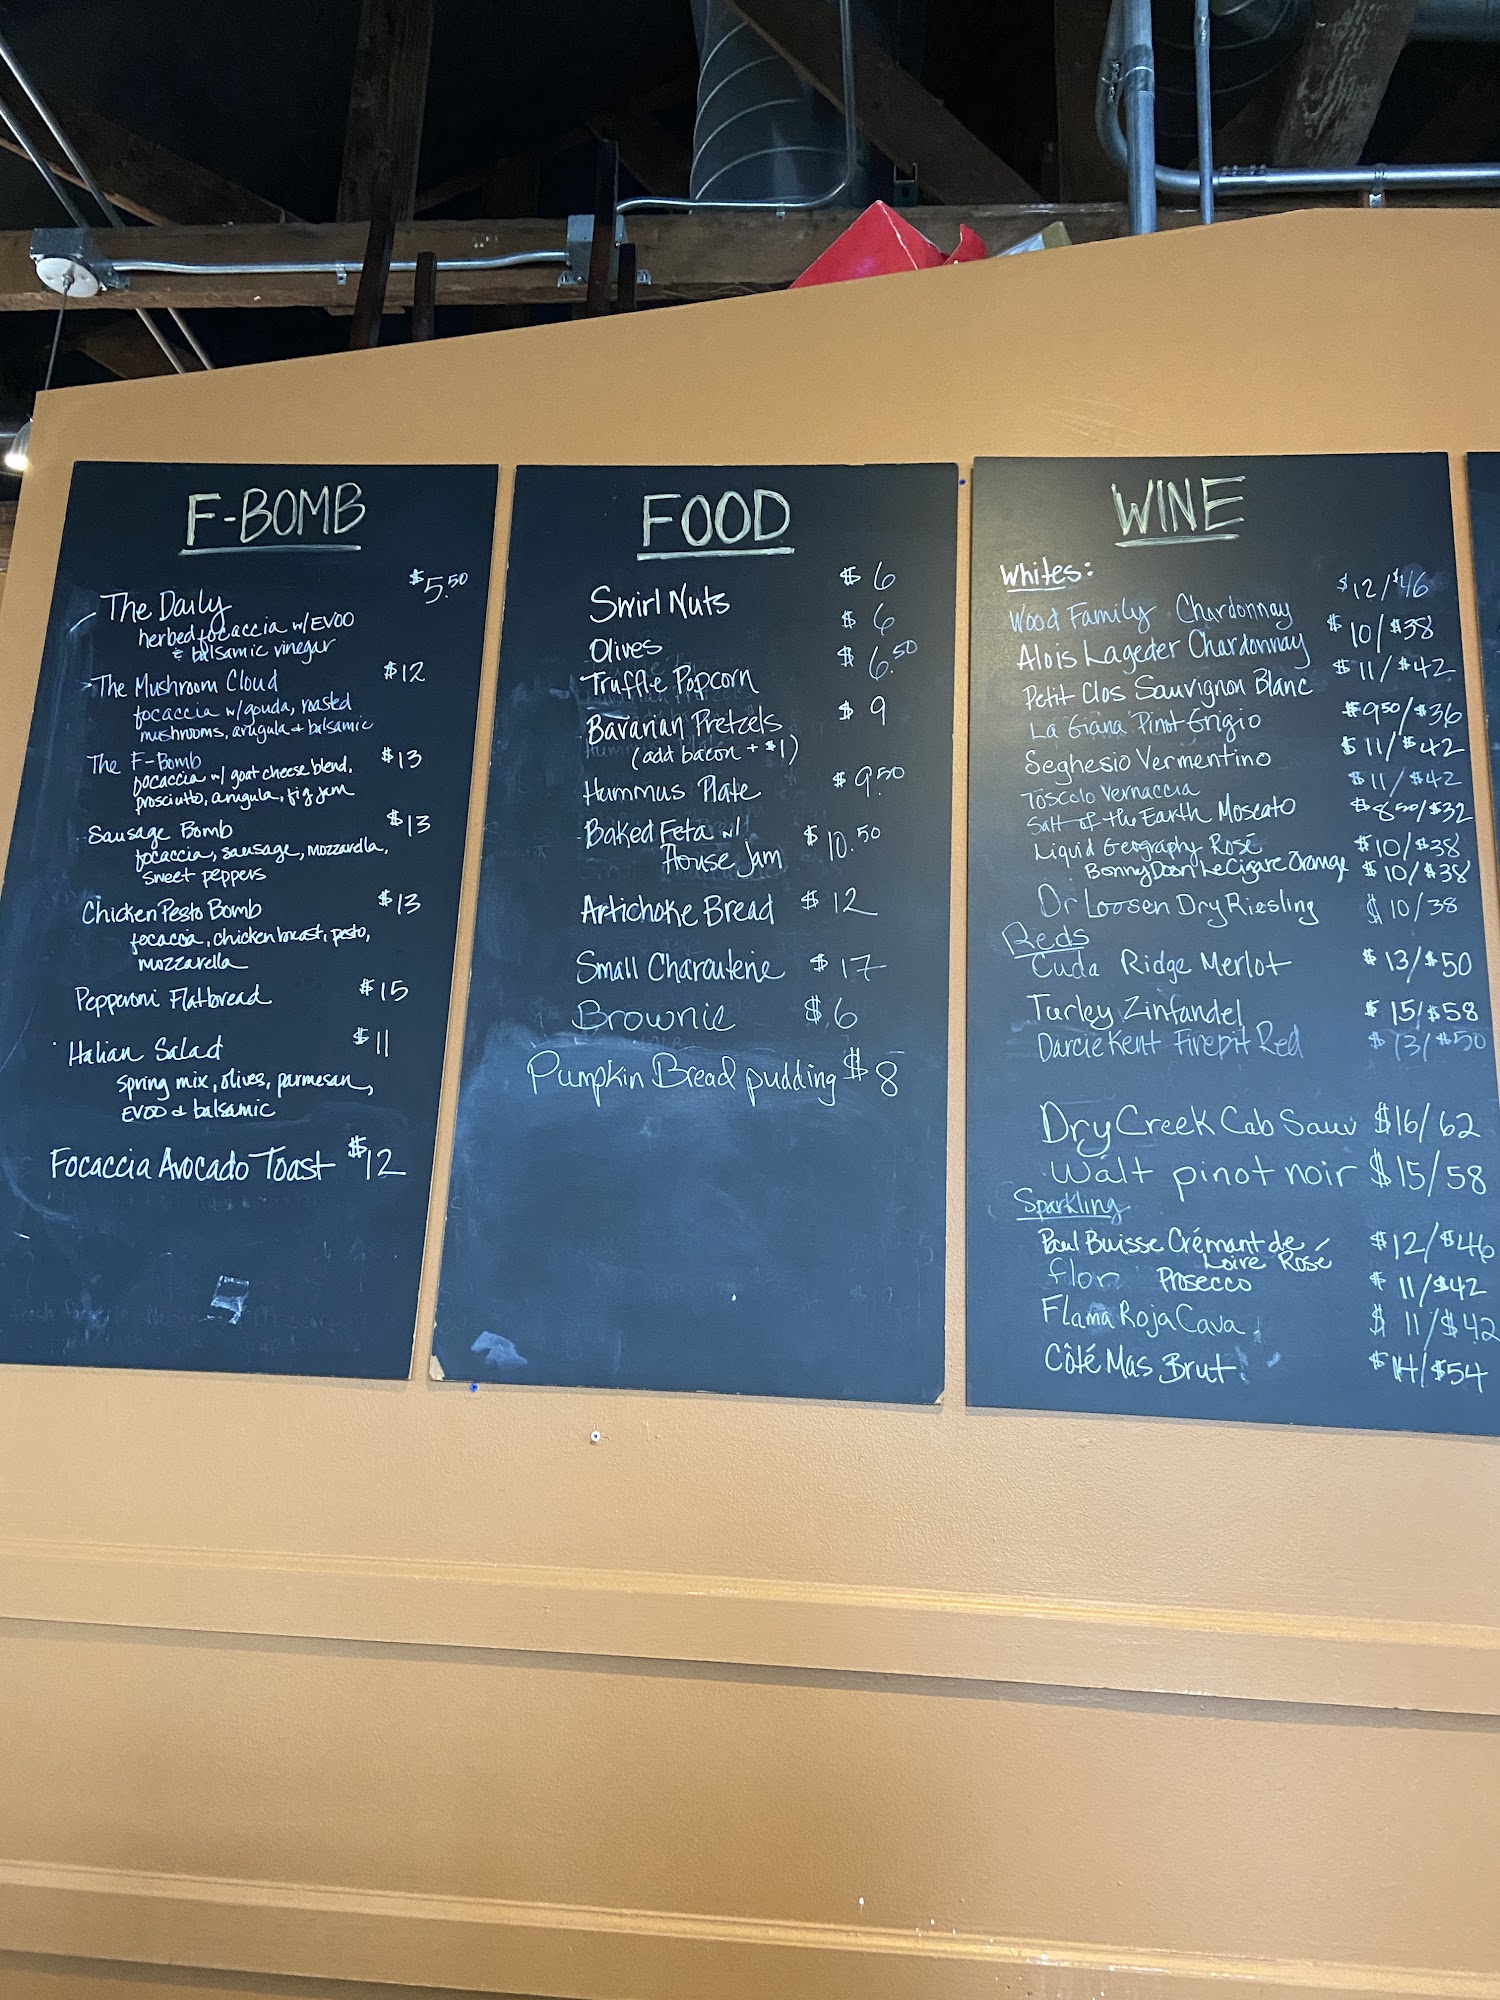 F-BOMB
The Daily $5.50
herbed focaccia w/EVOO
& balsamic vinegar
The Mushroom Cloud $12
focaccia w/gouda, roasted
mushrooms, arugula & balsamic
The F-Bomb $13
focaccia w/ goat cheese blend,
prosciutto, arugula, fig jam
Sausage Bomb $13
focaccia, sausage, mozzarella,
sweet peppers
Chicken Pesto Bomb $13
focaccia, chicken breast, pesto,
mozzarella
Pepperoni Flatbread $15
Italian Salad $11
spring mix, olives, parmesan,
EVOO & balsamic
Focaccia Avocado Toast $12
FOOD
Swirl Nuts $6
Olives $6
Truffle Popcorn $6.50
Bavarian Pretzels $9
(add bacon + $1)
Hummus Plate $9.50
Baked Feta w/
House Jam $10.50
Artichoke Bread $12
Small Charcuterie $17
Brownie $6
Pumpkin Bread pudding $8
WINE
Whites:
Wood Family Chardonnay $12/$46
Alois Lageder Chardonnay $10/$38
Petit Clos Sauvignon Blanc $11/$42
La Giana Pinot Grigio $9.50/$36
Seghesio Vermentino $11/$42
Toscolo Vernaccia $11/$42
Salt of the Earth Moscato $8.50/$32
Liquid Geography Rosé $10/$38
Bonny Doon Le Cigare Orange $10/$38
Dr Loosen Dry Riesling $10/38
Reds
Cuda Ridge Merlot $13/$50
Turley Zinfandel $15/$58
Darcie Kent Firepit Red $13/$50
Dry Creek Cab Sauv $16/62
Walt pinot noir $15/58
Sparkling
Paul Buisse Crémant de $12/$46
Loire Rosé
flor Prosecco $11/$42
Flama Roja Cava $11/$42
Côté Mas Brut $14/$54